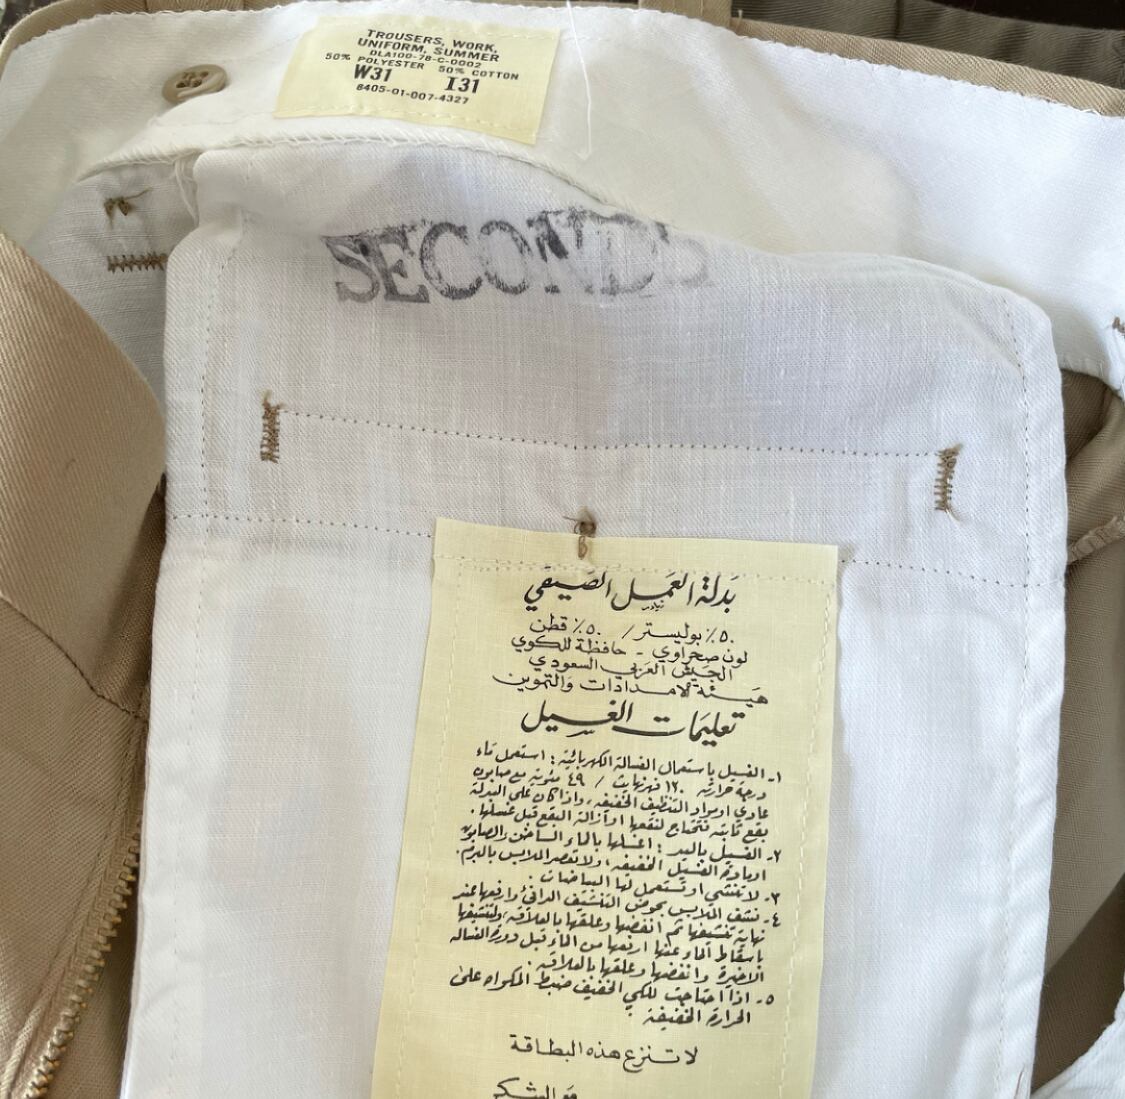 TROUSERS, WORK,
UNIFORM, SUMMER
DLA100-78-C-0002
50% POLYESTER 50% COTTON
W31 I31
8405-01-007-4327
SECONDS
بَدلة العَمَل الصَيفي
٥٠٪ بوليستر / ٥٠٪ قطن
لون صحراوي - حافظة للكوي
الجيش العربي السعودي
هيئة الامدادات والتموين
تعليمات الغسيل
١- الغسيل باستعمال الغسالة الكهربائية : استعمل ماء
درجة حرارته ١٢٠ فهرنهايت / ٤٩ مئوية مع صابون
عادي او مواد التنظيف الخفيفه، واذا كان على البدلة
بقع ثابته تحتاج لنقعها او ازالة البقع قبل غسلها .
٢- الغسيل باليد : اغسلها بالماء الساخن والصابون
او مادة الغسيل الخفيفه ، ولا تعصر الملابس بالبرم.
٣- لا تنشي او تستعمل لها البياضات .
٤- نشف الملابس بحوض التنشيف الدافئ وارفعها عند
نهاية تنشيفها ثم انفضها وعلقها بالعلاقه، ولتنشيفها
باسقاط الماء عنها ارفعها من الماء قبل دورة الغسالة
الاخيرة وانفضها وعلقها بالعلاقه .
٥- اذا احتاجت للكي الخفيف ضبط المكواه على
الحرارة الخفيفة .
لا تنزع هذه البطاقة
مع الشكر